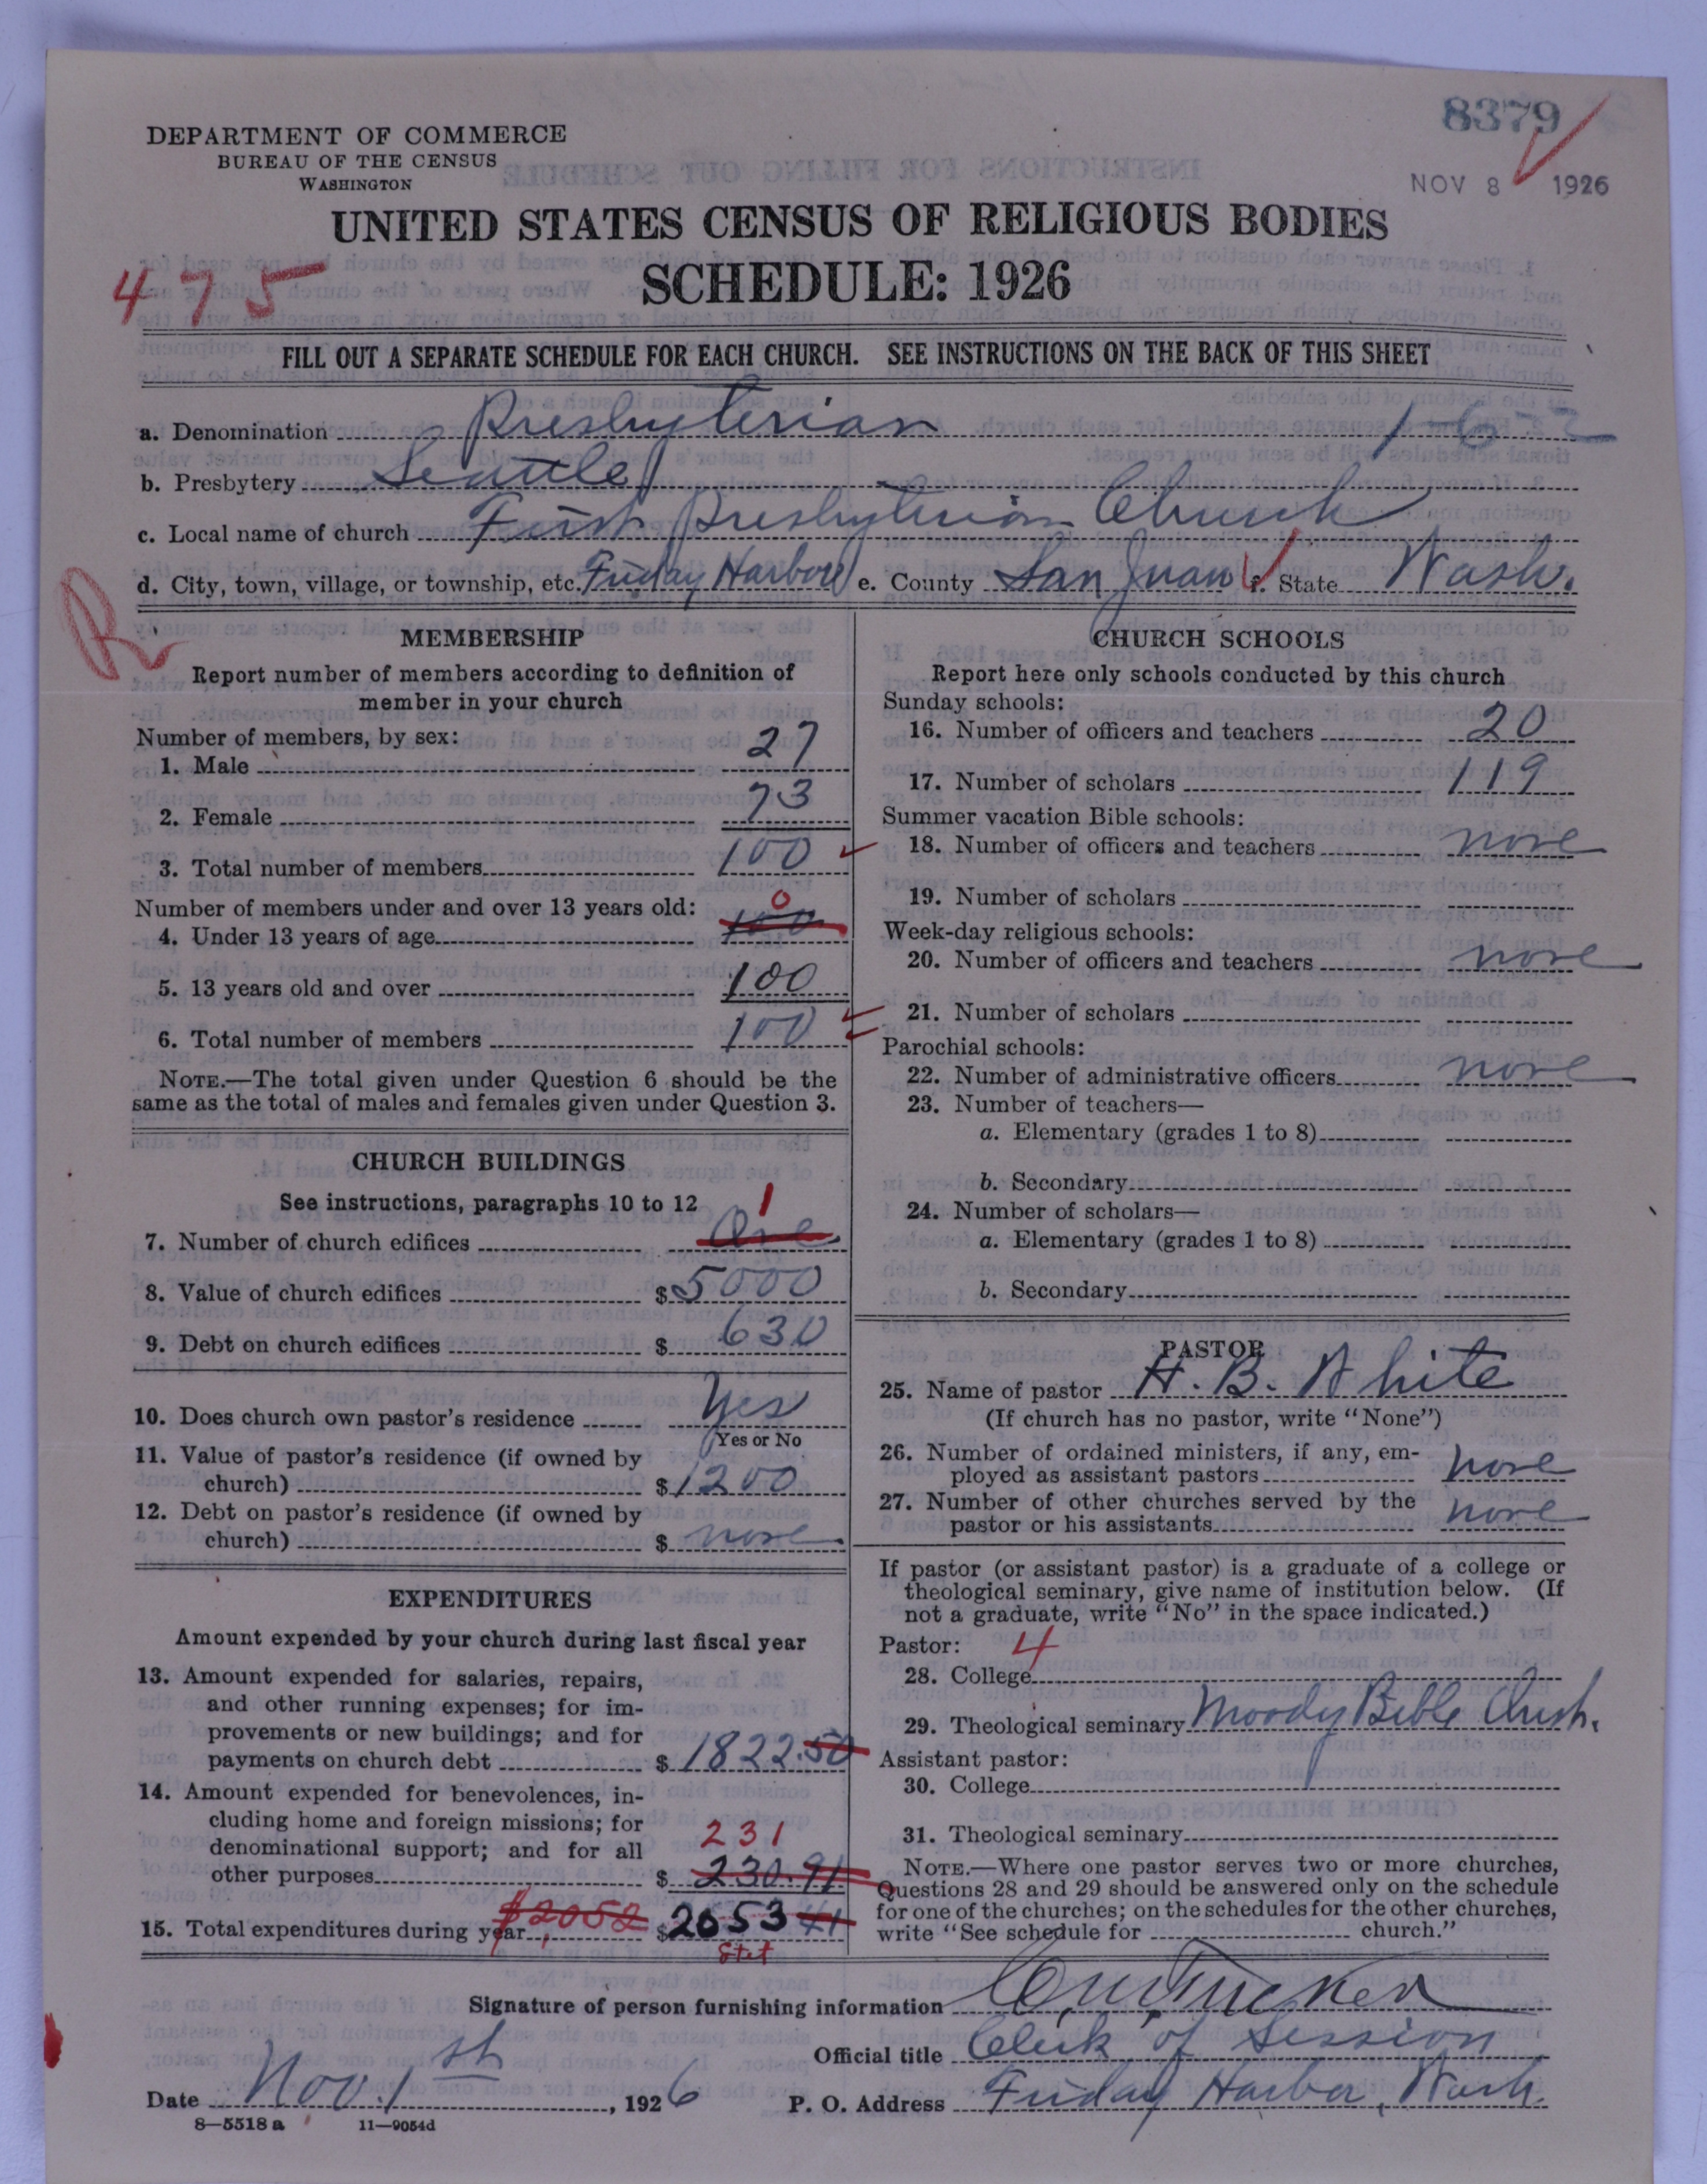 8379
NOV 8 1926
DEPARTMENT OF COMMERCE
BUREAU OF THE CENSUS
WASHINGTON
UNITED STATES CENSUS OF RELIGIOUS BODIES
SCHEDULE: 1926
475
FILL OUT A SEPARATE SCHEDULE FOR EACH CHURCH. SEE INSTRUCTIONS ON THE BACK OF THIS SHEET
a. Denomination Presbyterian 1-6
b. Presbytery Seattle
c. Local name of church First Presbyterian Church
d. City, town, village, or township, etc. Friday Harbor e. County San Juan f. State Wash.
R
MEMBERSHIP
Report number of members according to definition of
member in your church
Number of members, by sex:
1. Male 27
2. Female 73
3. Total number of members 100
Number of members under and over 13 years old:
4. Under 13 years of age 100 0
5. 13 years old and over 100
6. Total number of members 100
NOTE.—The total given under Question 6 should be the
same as the total of males and females given under Question 3.
CHURCH BUILDINGS
See instructions, paragraphs 10 to 12
7. Number of church edifices One 1
8. Value of church edifices $ 5000
9. Debt on church edifices $ 630
10. Does church own pastor's residence Yes
Yes or No
11. Value of pastor's residence (if owned by
church) $ 1200
12. Debt on pastor's residence (if owned by
church) $ none
EXPENDITURES
Amount expended by your church during last fiscal year
13. Amount expended for salaries, repairs,
and other running expenses; for im-
provements or new buildings; and for
payments on church debt $ 1822.50
14. Amount expended for benevolences, in-
cluding home and foreign missions; for
denominational support; and for all
231
other purposes $ 230.91
15. Total expenditures during year $2052 $ 2053 41
Stet
CHURCH SCHOOLS
Report here only schools conducted by this church
Sunday schools:
16. Number of officers and teachers 20
17. Number of scholars 119
Summer vacation Bible schools:
18. Number of officers and teachers none
19. Number of scholars
Week-day religious schools:
20. Number of officers and teachers none
21. Number of scholars
Parochial schools:
22. Number of administrative officers none
23. Number of teachers—
a. Elementary (grades 1 to 8)
b. Secondary
24. Number of scholars—
a. Elementary (grades 1 to 8)
b. Secondary
PASTOR
25. Name of pastor H. B. White
(If church has no pastor, write "None")
26. Number of ordained ministers, if any, em-
ployed as assistant pastors none
27. Number of other churches served by the
pastor or his assistants none
If pastor (or assistant pastor) is a graduate of a college or
theological seminary, give name of institution below. (If
not a graduate, write "No" in the space indicated.)
Pastor: 4
28. College
29. Theological seminary Moody Bible Inst.
Assistant pastor:
30. College
31. Theological seminary
NOTE.—Where one pastor serves two or more churches,
Questions 28 and 29 should be answered only on the schedule
for one of the churches; on the schedules for the other churches,
write "See schedule for church."
Signature of person furnishing information Tucker
Official title Clerk of Session
Date Nov 1st, 1926 P. O. Address Friday Harbor, Wash.
8—5518 a 11—9054d